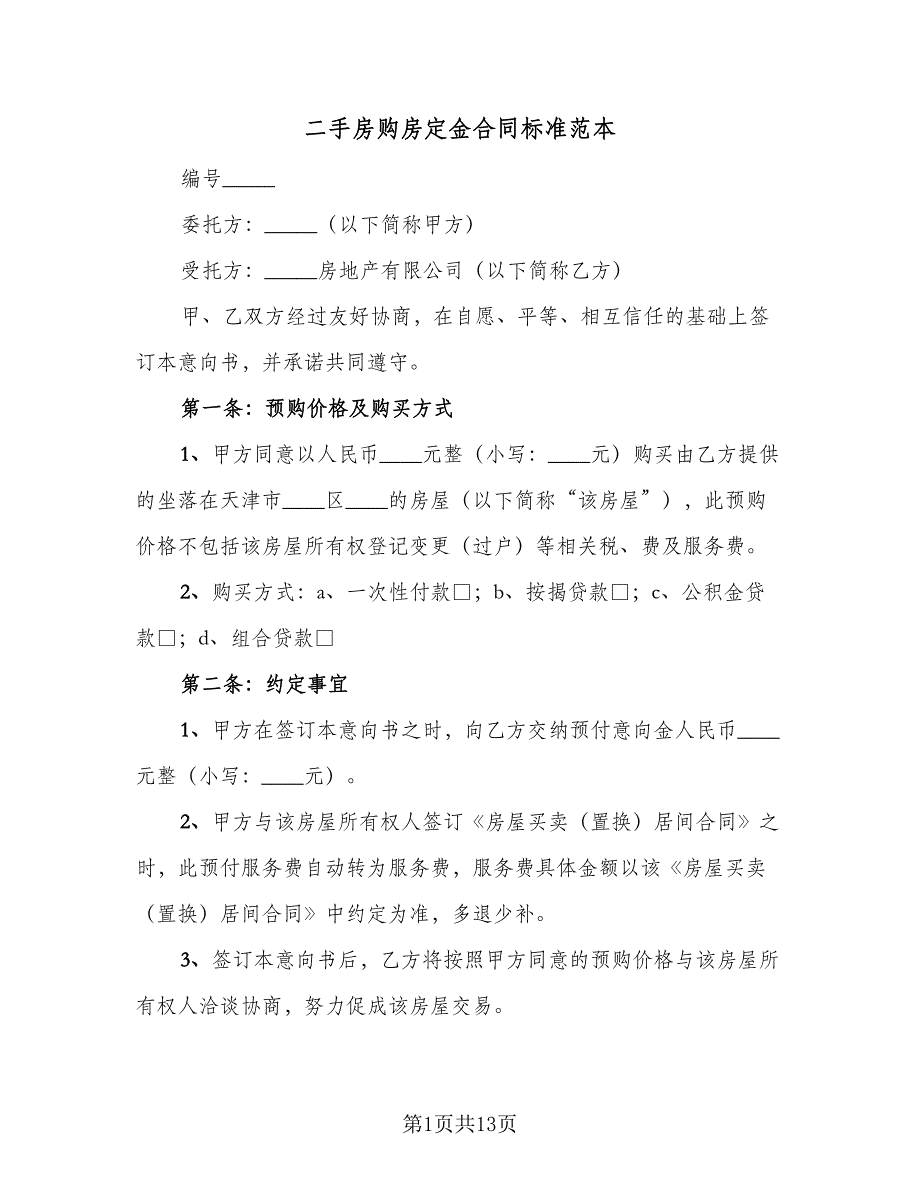 二手房购房定金合同标准范本
编号_____
委托方：_____（以下简称甲方）
受托方：_____房地产有限公司（以下简称乙方）
甲、乙双方经过友好协商，在自愿、平等、相互信任的基础上签
订本意向书，并承诺共同遵守。
第一条：预购价格及购买方式
1、甲方同意以人民币____元整（小写：____元）购买由乙方提供
的坐落在天津市____区____的房屋（以下简称“该房屋”），此预购
价格不包括该房屋所有权登记变更（过户）等相关税、费及服务费。
2、购买方式：a、一次性付款□；b、按揭贷款□；c、公积金贷
款□；d、组合贷款□
第二条：约定事宜
1、甲方在签订本意向书之时，向乙方交纳预付意向金人民币____
元整（小写：____元）。
2、甲方与该房屋所有权人签订《房屋买卖（置换）居间合同》之
时，此预付服务费自动转为服务费，服务费具体金额以该《房屋买卖
（置换）居间合同》中约定为准，多退少补。
3、签订本意向书后，乙方将按照甲方同意的预购价格与该房屋所
有权人洽谈协商，努力促成该房屋交易。
第1页共13页